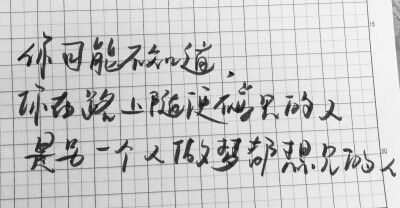 你可能不知道，
你在路上随便碰见的人
是另一个人做梦都想见的人